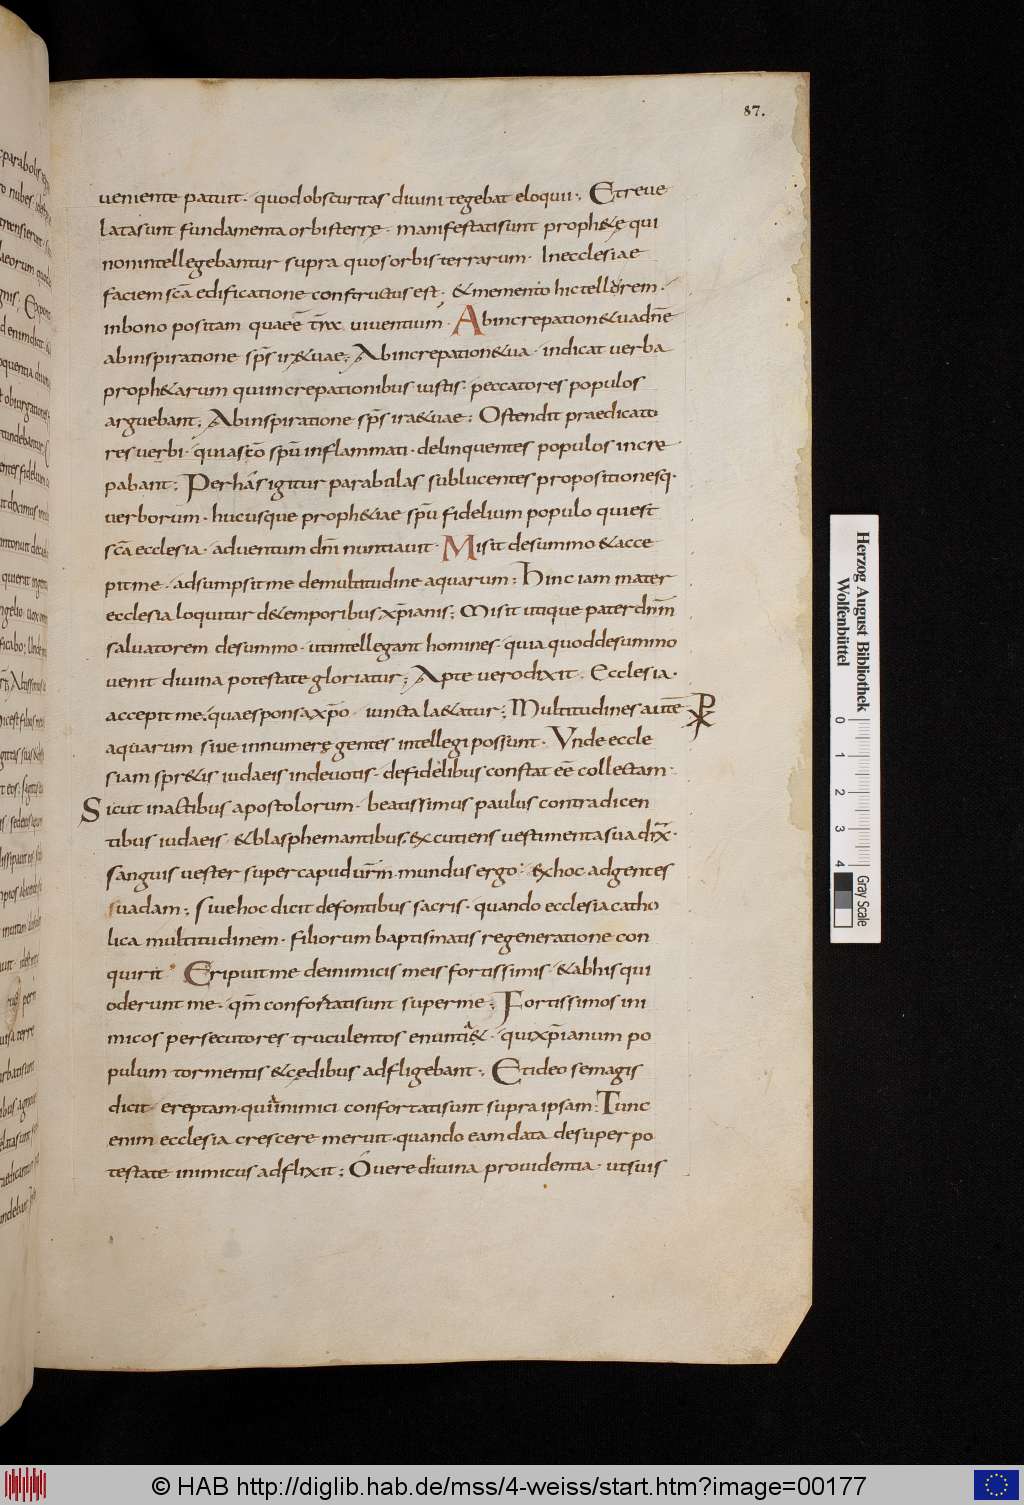 87.
ueniente patuit · quod obscuritas diuini tegebat eloquii ; Et reue
lata sunt fundamenta orbis terrę · manifestati sunt proph&ę qui
non intellegebantur supra quos orbis terrarum · In ecclesiae
faciem sc̄a edificatione constructus est · & memento hic tellorem ·
in bono positam quae ē t̄rx uiuentium · Ab increpation& ua dn̄e
ab inspiratione sp̄s ir& uae ; Ab increpation& ua · indicat uerba
proph&arum qui increpationibus iustis · peccatores populos
arguebant ; Ab inspiratione sp̄s ira& uae ; Ostendit praedicato
res uerbi · qui a sc̄o sp̄u inflammati · delinquentes populos incre
pabant ; Per has igitur parabulas sublucentes propositionesq·
uerborum · hucusque proph&iae sp̄u fidelium populo qui est
sc̄a ecclesia · aduentum dn̄i nuntiauit · Misit de summo & acce
pit me · adsumpsit me de multitudine aquarum ; Hinc iam mater
ecclesia loquitur d& emporibus xp̄ianis ; Misit utique pater dn̄m
saluatorem de summo · ut intellegant homines · quia quod de summo
uenit diuina potestate gloriatur ; Apte uero dixit · Ecclesia ·
accepit me · quae sponsa xp̄o iuncta la&atur ; Multitudines autē
aquarum siue innumerę gentes intellegi possunt · Unde eccle
siam spr&is iudaeis indeuotis · de fidelibus constat eē collectam ·
Sicut in actibus apostolorum · beatissimus paulus contradicen
tibus iudaeis · & blasphemantibus · excutiens uestimenta sua dix̄ ·
sanguis uester super capud ur̄m · mundus ergo · ex hoc ad gentes
uadam ; Siue hoc dicit de fontibus sacris · quando ecclesia catho
lica multitudinem · filiorum baptismatis regeneratione con
quirit Eripuit me de inimicis meis fortissimis · & ab his qui
oderunt me · qm̄ confortati sunt super me ; Fortissimos ini
micos persecutores truculentos enunti& · qui xp̄ianum po
pulum tormentis & cędibus adfligebant ; Et ideo se magis
dicit ereptam · quia inimici confortati sunt supra ipsam ; Tunc
enim ecclesia crescere meruit · quando eam data desuper po
testate inimicus adflixit ; O uere diuina prouidentia · ut suis
Herzog August Bibliothek
Wolfenbüttel
0 1 2 3 4
Gray Scale
© HAB http://diglib.hab.de/mss/4-weiss/start.htm?image=00177